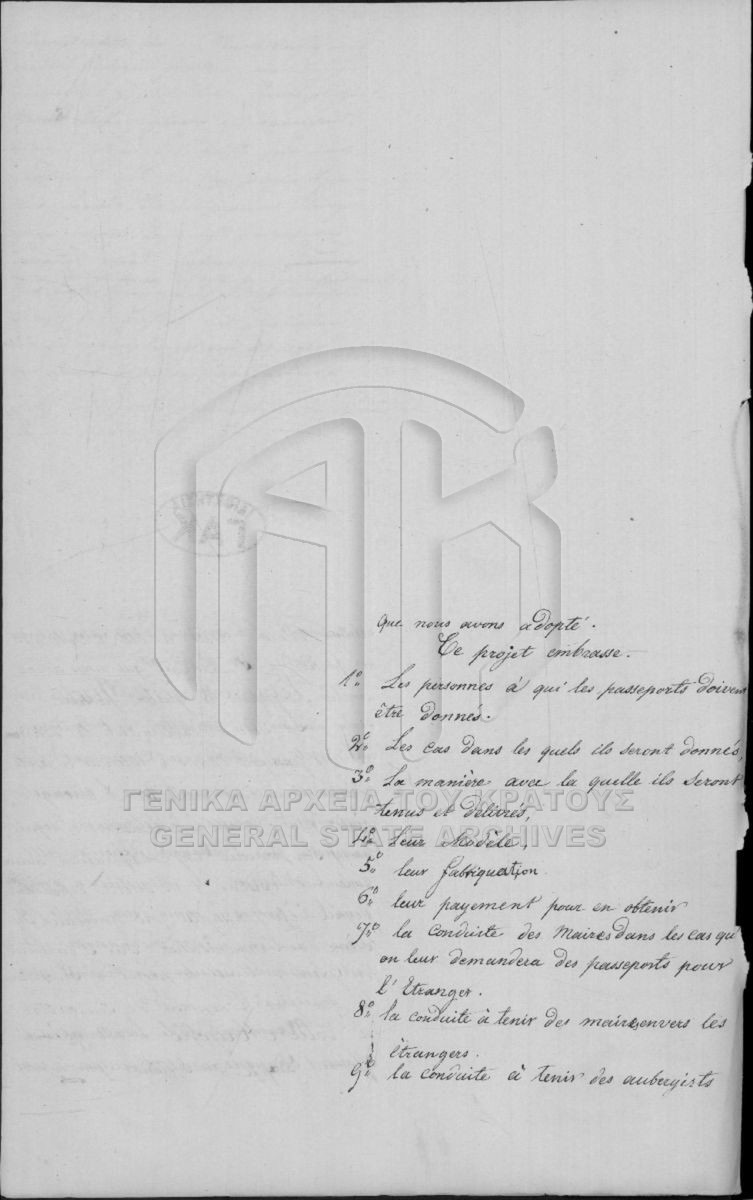 que nous avons adopté.
Ce projet embrasse.
1º Les personnes à qui les passeports doivent
être donnés.
2º Les cas dans les quels ils seront donnés,
3º La manière avec la quelle ils seront
tenus et délivrés,
ΓΕΝΙΚΑ ΑΡΧΕΙΑ ΤΟΥ ΚΡΑΤΟΥΣ
GENERAL STATE ARCHIVES
4º Leur Modèle,
5º leur fabriquation.
6º leur payement pour en obtenir
7º la Conduite des Maires dans les cas qu'
on leur demandera des passeports pour
l'Etranger.
8º la conduite à tenir des maires envers les
étrangers.
9º la conduite à tenir des aubergists